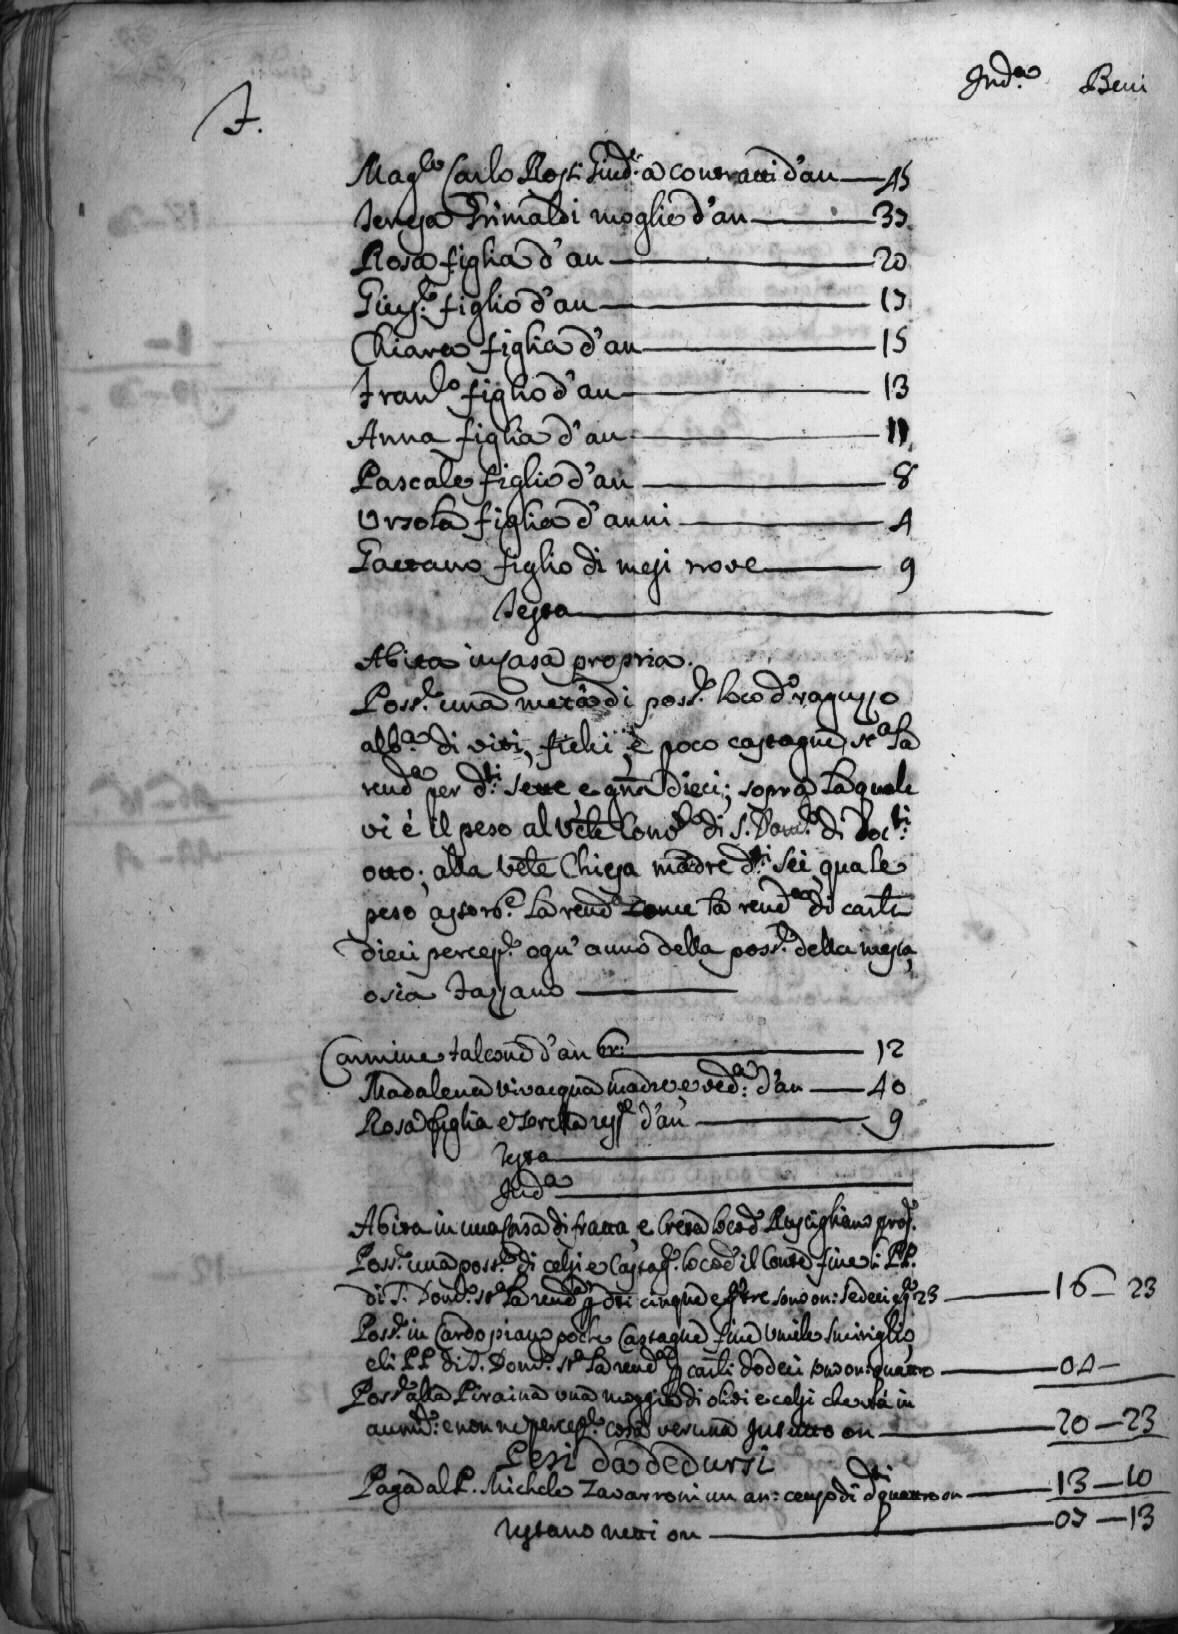 Ind.a Beni
F.
Mag.co Carlo Rossi Giud.e a contratti d'an 45
Teresa Grimaldi moglie d'an 37
Rosa figlia d'an 20
Gius.e figlio d'an 17
Chiara figlia d'an 15
Fran.co figlio d'an 13
Anna figlia d'an 11
Pascale figlio d'an 8
Ursola figlia d'anni 4
Gaetano figlio di mesi nove 9
Testa
Abita in casa propria.
Poss.e una metà di poss.e loco d.o raguzzo
alb.a di viti, fichi, e poco castagne st.a la
rend.a per d.ti sette e gna dieci; sopra la quale
vi è il peso al Vble Conv.to di S. Dom.co di doc.ti
otto; alla Vble Chiesa madre d.ti sei, quale
peso assorb.e la rend.a la rend.a di carlni
dieci percep.e ogn'anno della poss.e della
osia Fazzano
Carmine Falcone d'an br: 12
Madalena Vivacqua madre, e ved.a: d'an 40
Rosa figlia e sorella resp.e d'an 9
Testa
Ind.a
Abita in una casa di fratta, e creta loco d.o Ruscigliano prop.
Poss.e una poss.e di celsi e castag.e loco d.o il Conte fine li PP.
di S. Dom.co st.a la rend.a p dti cinque e gr tre sono on: sedeci e gr 23 16 23
Poss.e in Cardopiano poche castagne fine Umile Smiriglio,
e li PP di S. Dom.co st.a la rend.a p carlni dodeci sono on: quattro 04
Poss.e alla Piraina una di olivi e celsi che stà in
e non ne percep.e cosa veruna In tutto on 20 23
Pesi da dedursi
Paga al P. Michele Zavarroni un an: censo di d.ti quattro on 13 10
restano netti on 07 13